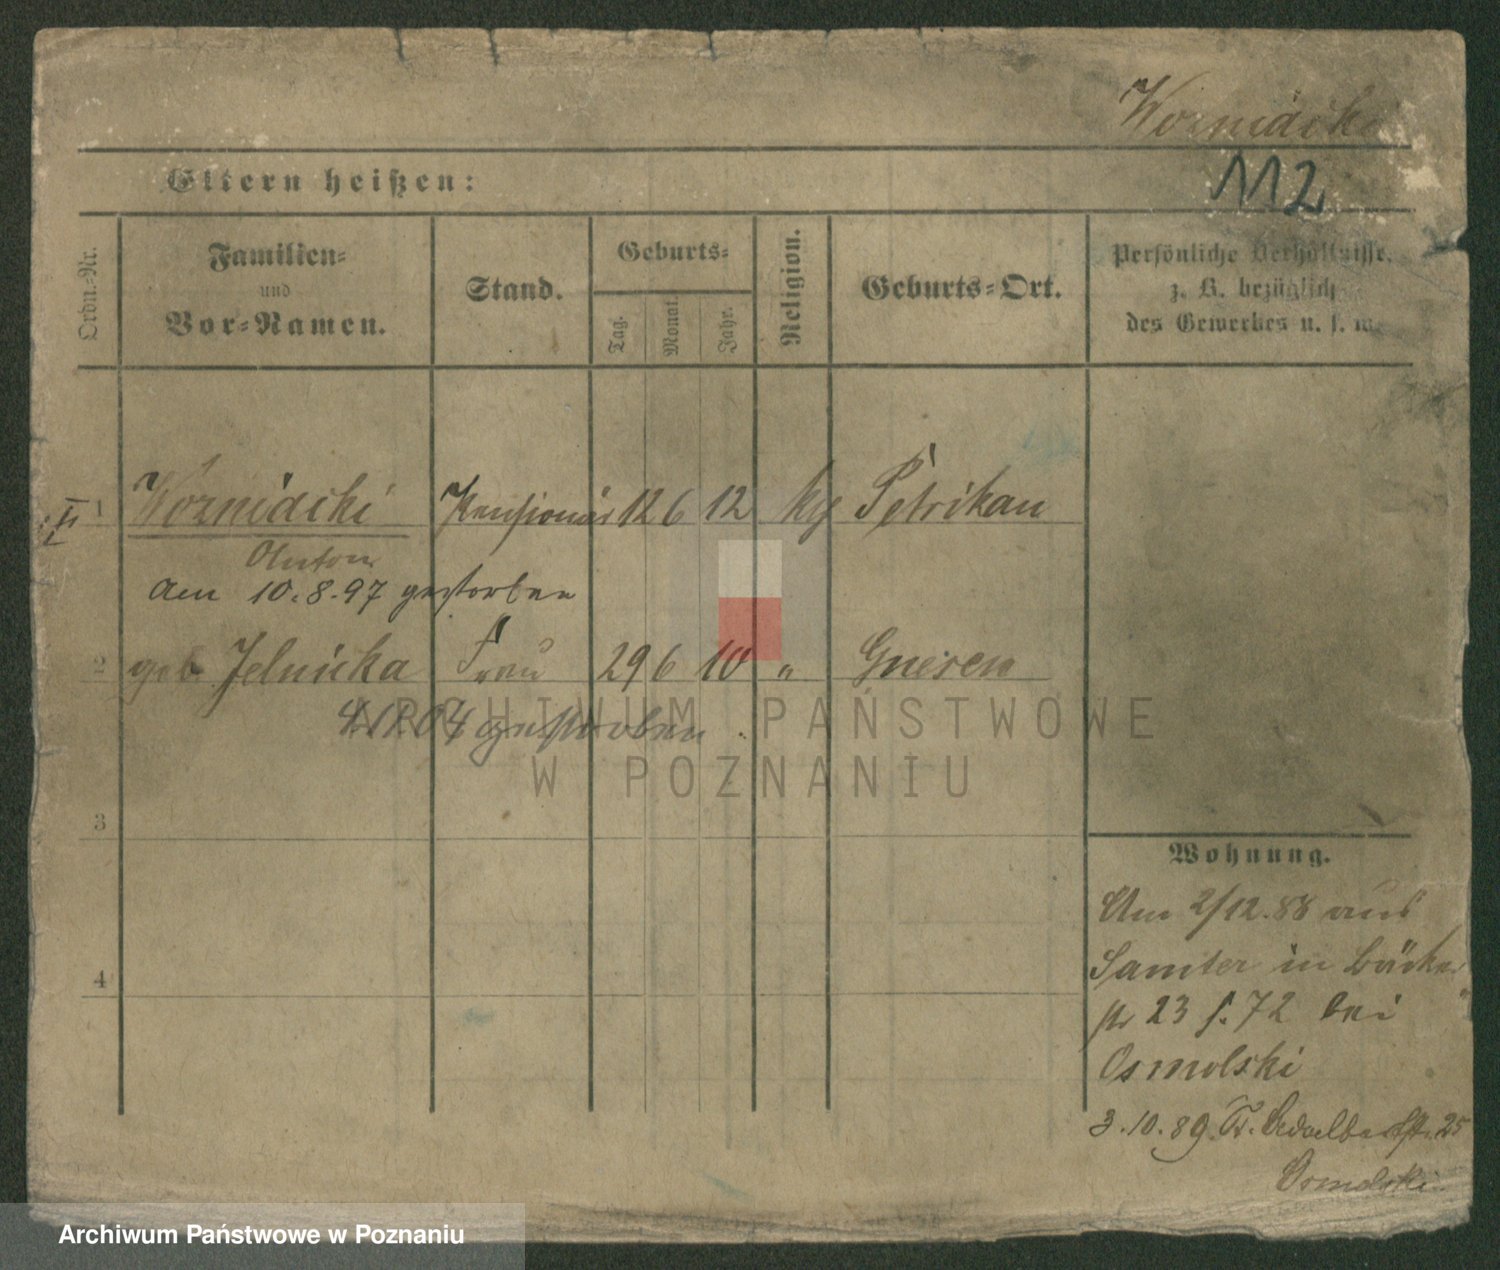 Wozniacki
112
Eltern heißen:
Ordn.-Nr.
Familien-
und
Vor-Namen.
Stand.
Geburts-
Tag.
Monat.
Jahr.
Religion.
Geburts-Ort.
Persönliche Verhältnisse,
z. B. bezüglich
des Gewerbes u. s. w.
1 Wozniacki Pensionär 12 6 12 kg Petrikau
Anton
am 10.8.97 gestorben
2 geb Jelnicka Frau 29 6 10 " Gnesen
gestorben
3
4
Wohnung.
Am 2/12.88 aus
Samter in Bäcker
str 23 f. 72 bei
Osmolski
3.10.89. Kl. Adalbertstr. 25
Osmolski
ARCHIWUM PAŃSTWOWE
W POZNANIU
Archiwum Państwowe w Poznaniu